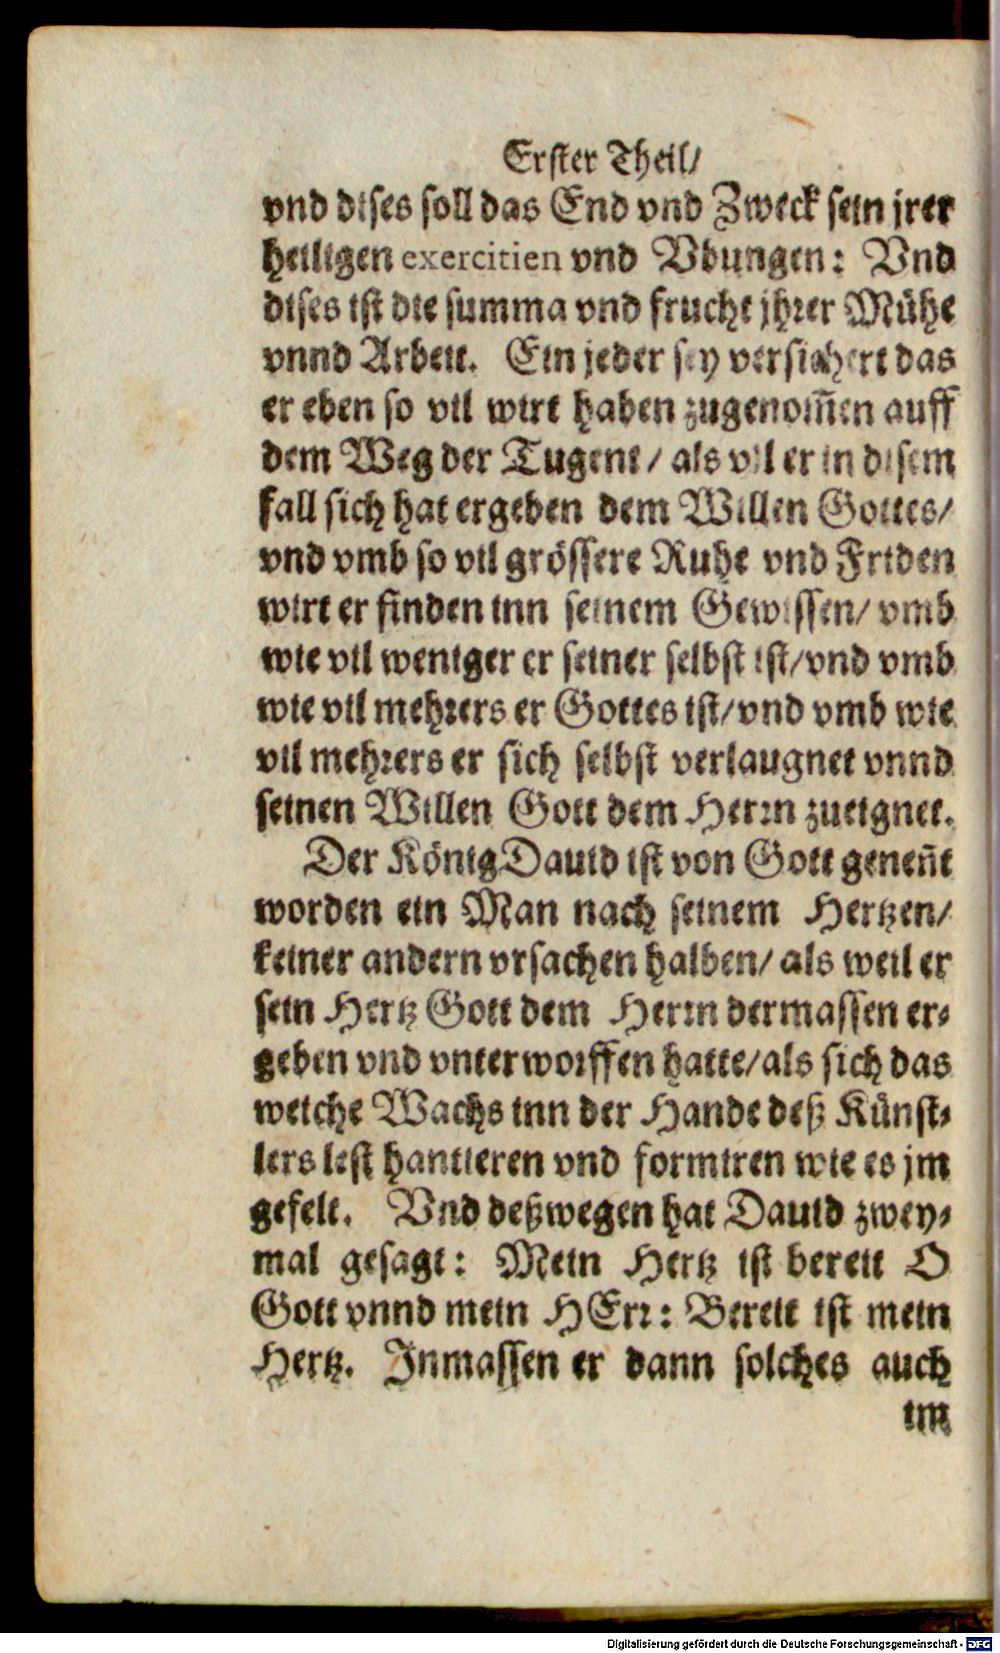 Erster Theil/
vnd dises soll das End vnd Zweck sein jrer
heiligen exercitien vnd Vbungen: Vnd
dises ist die summa vnd frucht jhrer Mühe
vnnd Arbeit. Ein jeder sey versichert das
er eben so vil wirt haben zugenom̃en auff
dem Weg der Tugent / als vil er in disem
fall sich hat ergeben dem Willen Gottes/
vnd vmb so vil grössere Ruhe vnd Friden
wirt er finden inn seinem Gewissen/ vmb
wie vil weniger er seiner selbst ist/vnd vmb
wie vil mehrers er Gottes ist/vnd vmb wie
vil mehrers er sich selbst verlaugnet vnnd
seinen Willen Gott dem Herrn zueignet.
Der König Dauid ist von Gott geneñt
worden ein Man nach seinem Hertzen/
keiner andern vrsachen halben/ als weil er
sein Hertz Gott dem Herrn dermassen er⸗
geben vnd vnterworffen hatte/als sich das
weiche Wachs inn der Hande deß Künst⸗
lers lest hantieren vnd formiren wie es jm
gefelt. Vnd deßwegen hat Dauid zwey⸗
mal gesagt: Mein Hertz ist bereit O
Gott vnnd mein HErr: Bereit ist mein
Hertz. Inmassen er dann solches auch
im
Digitalisierung gefördert durch die Deutsche Forschungsgemeinschaft - DFG